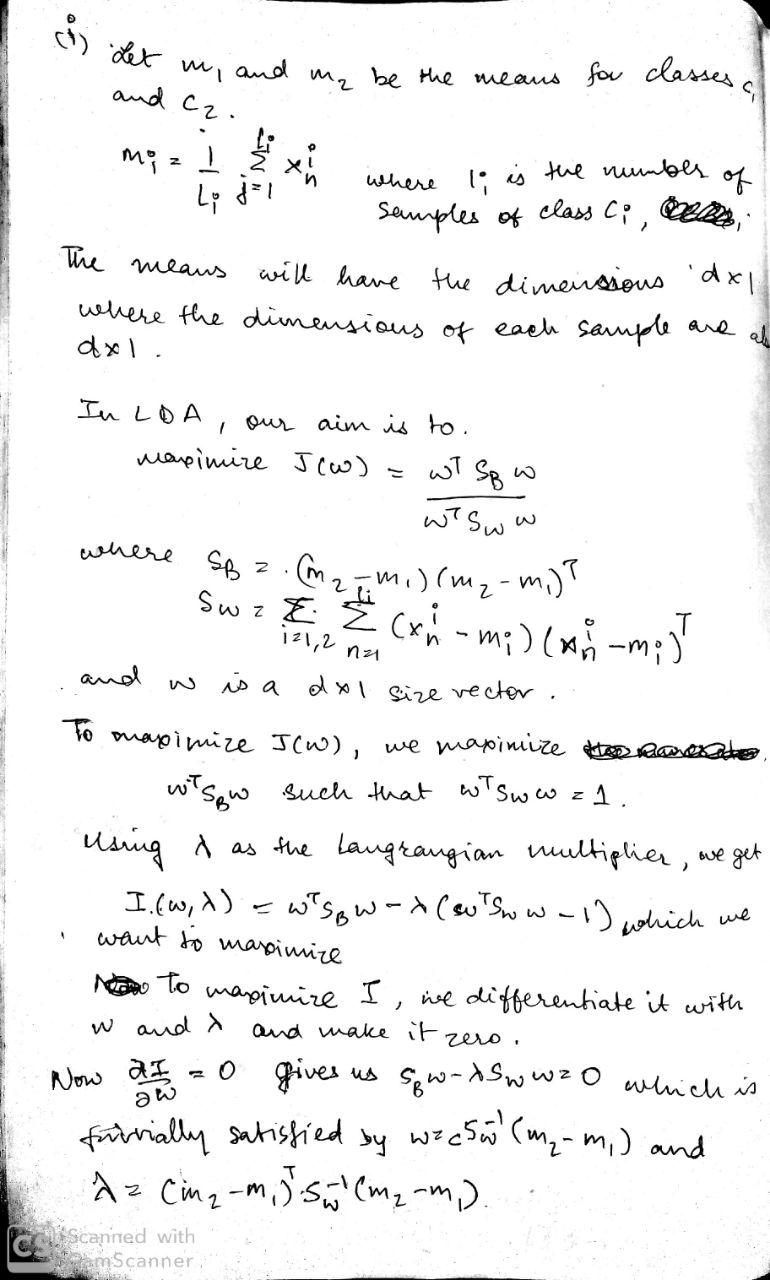 (i) Let m₁ and m₂ be the means for classes c₁
and c₂.
mᵢ = 1/Lᵢ Σ_{j=1}^{lᵢ} xₙⁱ where lᵢ is the number of
samples of class Cᵢ,
The means will have the dimensions dx1
where the dimensions of each sample are al
dx1.
In LDA, our aim is to.
maximize J(w) = wᵀ S_B w / wᵀ S_w w
where S_B = (m₂ - m₁)(m₂ - m₁)ᵀ
S_w = Σ_{i=1,2} Σ_{n=1}^{lᵢ} (xₙⁱ - mᵢ)(xₙⁱ - mᵢ)ᵀ
and w is a dx1 size vector.
To maximize J(w), we maximize
wᵀS_Bw such that wᵀS_w w = 1.
Using λ as the Langrangian multiplier, we get
I(w,λ) = wᵀS_Bw - λ(wᵀS_w w - 1) which we
want to maximize
To maximize I, we differentiate it with
w and λ and make it zero.
Now ∂I/∂w = 0 gives us S_Bw - λS_w w = 0 which is
trivially satisfied by w = cS_w⁻¹(m₂ - m₁) and
λ = (m₂ - m₁)ᵀS_w⁻¹(m₂ - m₁).
CS Scanned with
CamScanner